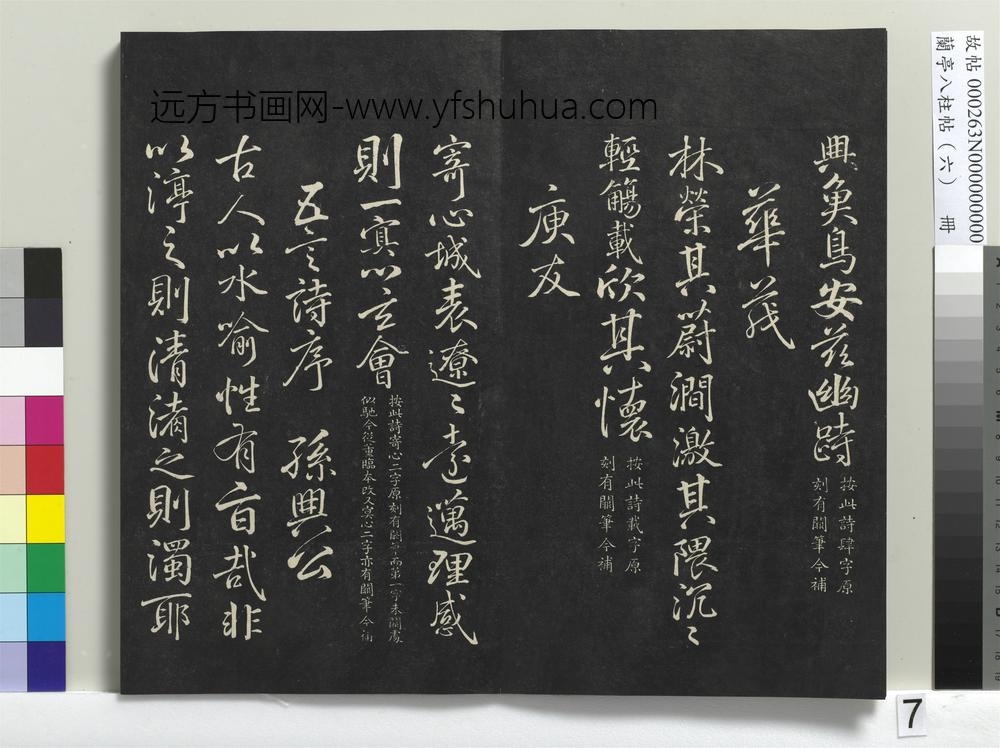 興魚鳥安茲幽跱
按此詩肆字原
刻有闕筆今補
華茂
林榮其蔚澗激其隈汎〻
輕觴載欣其懷
按此詩載字原
刻有闕筆今補
庾友
寄心城表遼〻遠邁理感
則一冥以玄會
按此詩寄心二字原刻有闕筆而第一字未闕處
似馳今從重臨本改又冥心二字亦有闕筆今補
五言詩序 孫興公
古人以水喻性有旨哉非
以渟之則清淆之則濁耶
远方书画网-www.yfshuhua.com
故帖 000263N000000000
蘭亭八柱帖（六） 冊
7